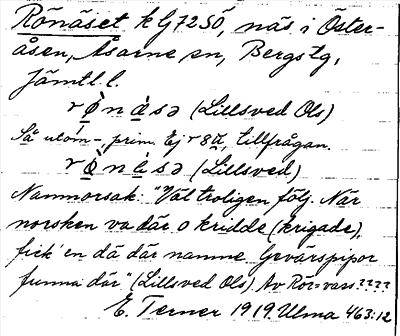 Rönäset k G7250, näs i Öster-
åsen, Åsarne sn, Bergs tg,
Jämtl. l.
r ö̀ n æ s ə (Lillsved Ols)
Så utom-, prim. Ej r 8 a, tillfrågan.
r ö̀ n a s ə (Lillsved)
Namnorsak: "Väl troligen följ. När
norsken va där o kridde (krigade),
fick' en då där namne. Gevärspipor
funna där" (Lillsved Ols) Av Rör=vass????
E. Terner 1919 Ulma 463:12